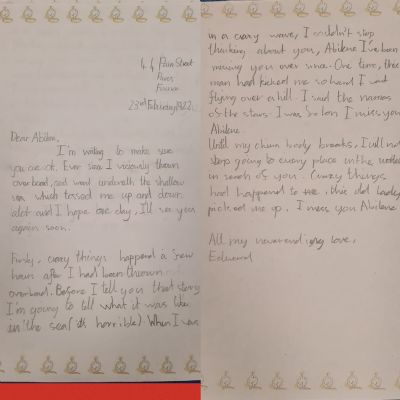 44 Pain Street
Paris
France
23rd February 1922
Dear Abilene,
I'm writing to make sure
you are ok. Ever since I viciously thrown
overboard, and went underneath the shallow
sea which tossed me up and down
alot and I hope one day, I'll see you
again soon.
Firstly, crazy things happend a few
hours after I had been thrown
overboard. Before I tell you that story
I'm going to tell what it was like
in the sea (its horrible) When I was
in a crazy wave, I couldn't stop
thinking about you, Abilene I've been
missing you ever since. One time, this
man had kicked me so hard I went
flying over a hill. I said the names
of the stars. I was so lon I miss you
Abilene.
Until my china body breaks, I will not
stop going to every place in the world
in search of you. Crazy things
had happend to me, this old lady
picked me up. I miss you Abilene
All my neverending love,
Edward